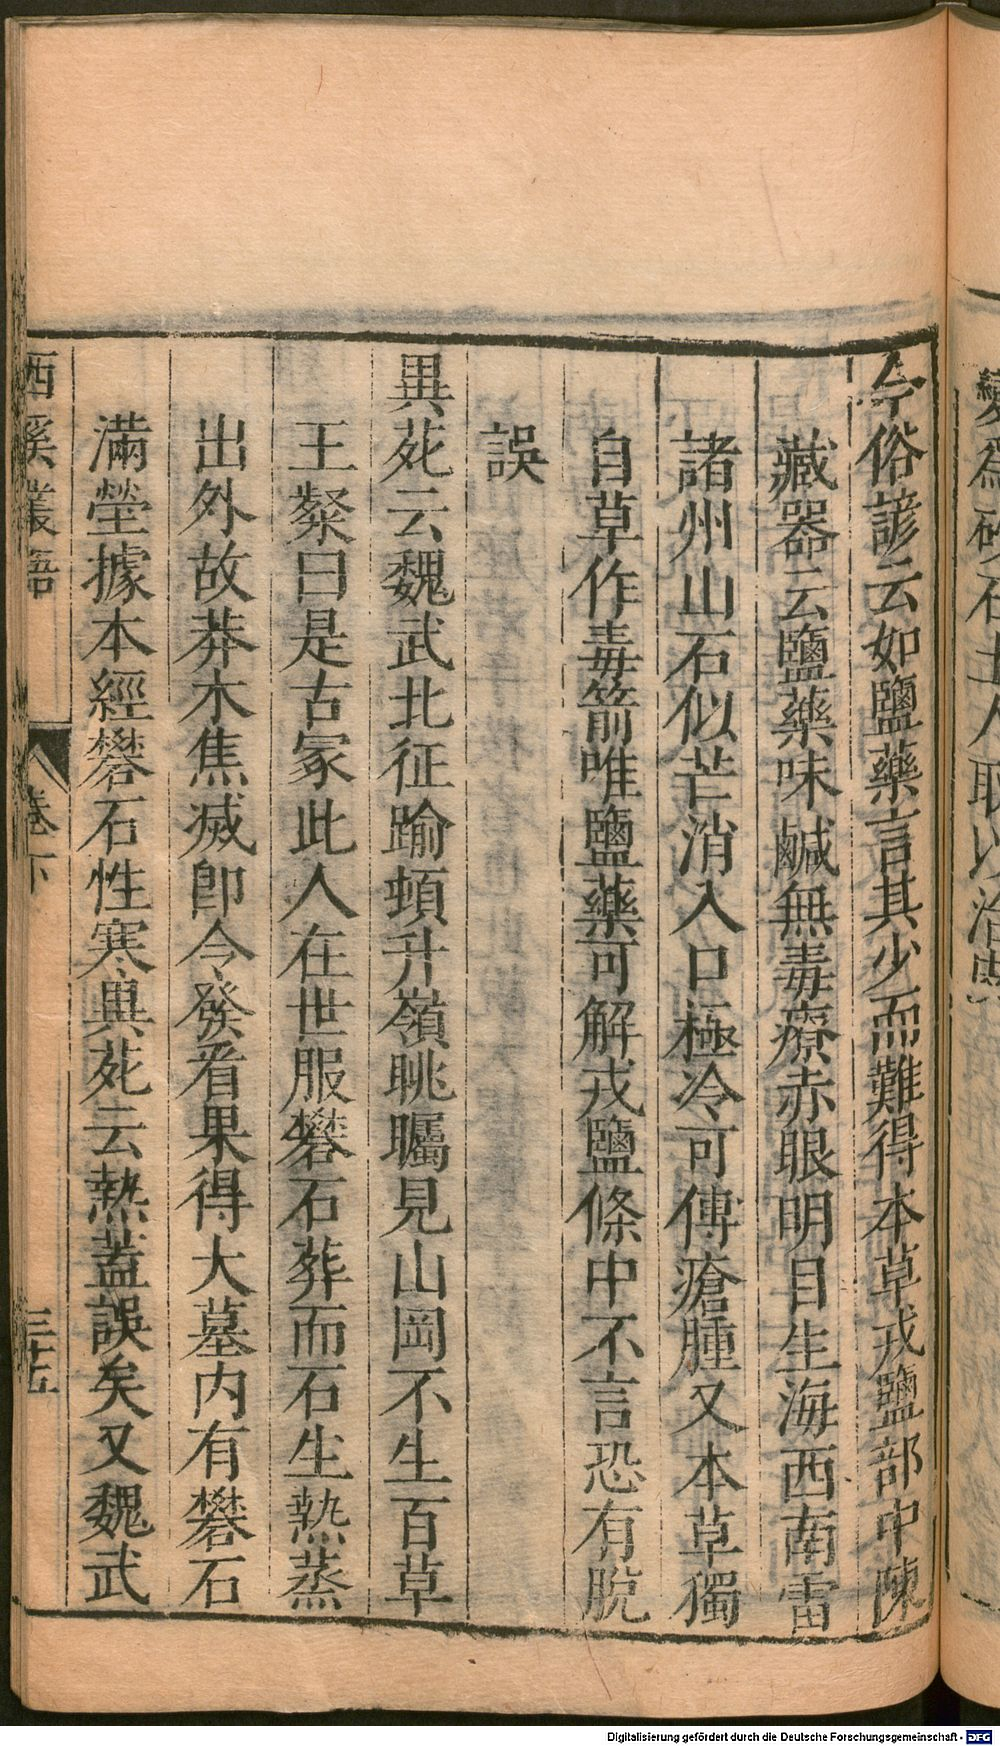 今俗諺云如鹽藥言其少而難得本草戎鹽部中陳
藏器云鹽藥味鹹無毒療赤眼明目生海西南雷
諸州山石似芒消入口極冷可傅瘡腫又本草獨
自草作毒箭唯鹽藥可解戎鹽條中不言恐有脫
誤
異苑云魏武北征踰頓升嶺眺矚見山岡不生百草
王粲曰是古冢此人在世服礬石葬而石生熱蒸
出外故莽木焦滅卽令發看果得大墓内有礬石
滿塋據本經礬石性寒異苑云熱蓋誤矣又魏武
西溪叢語
卷下
三十五
Digitalisierung gefördert durch die Deutsche Forschungsgemeinschaft - DFG